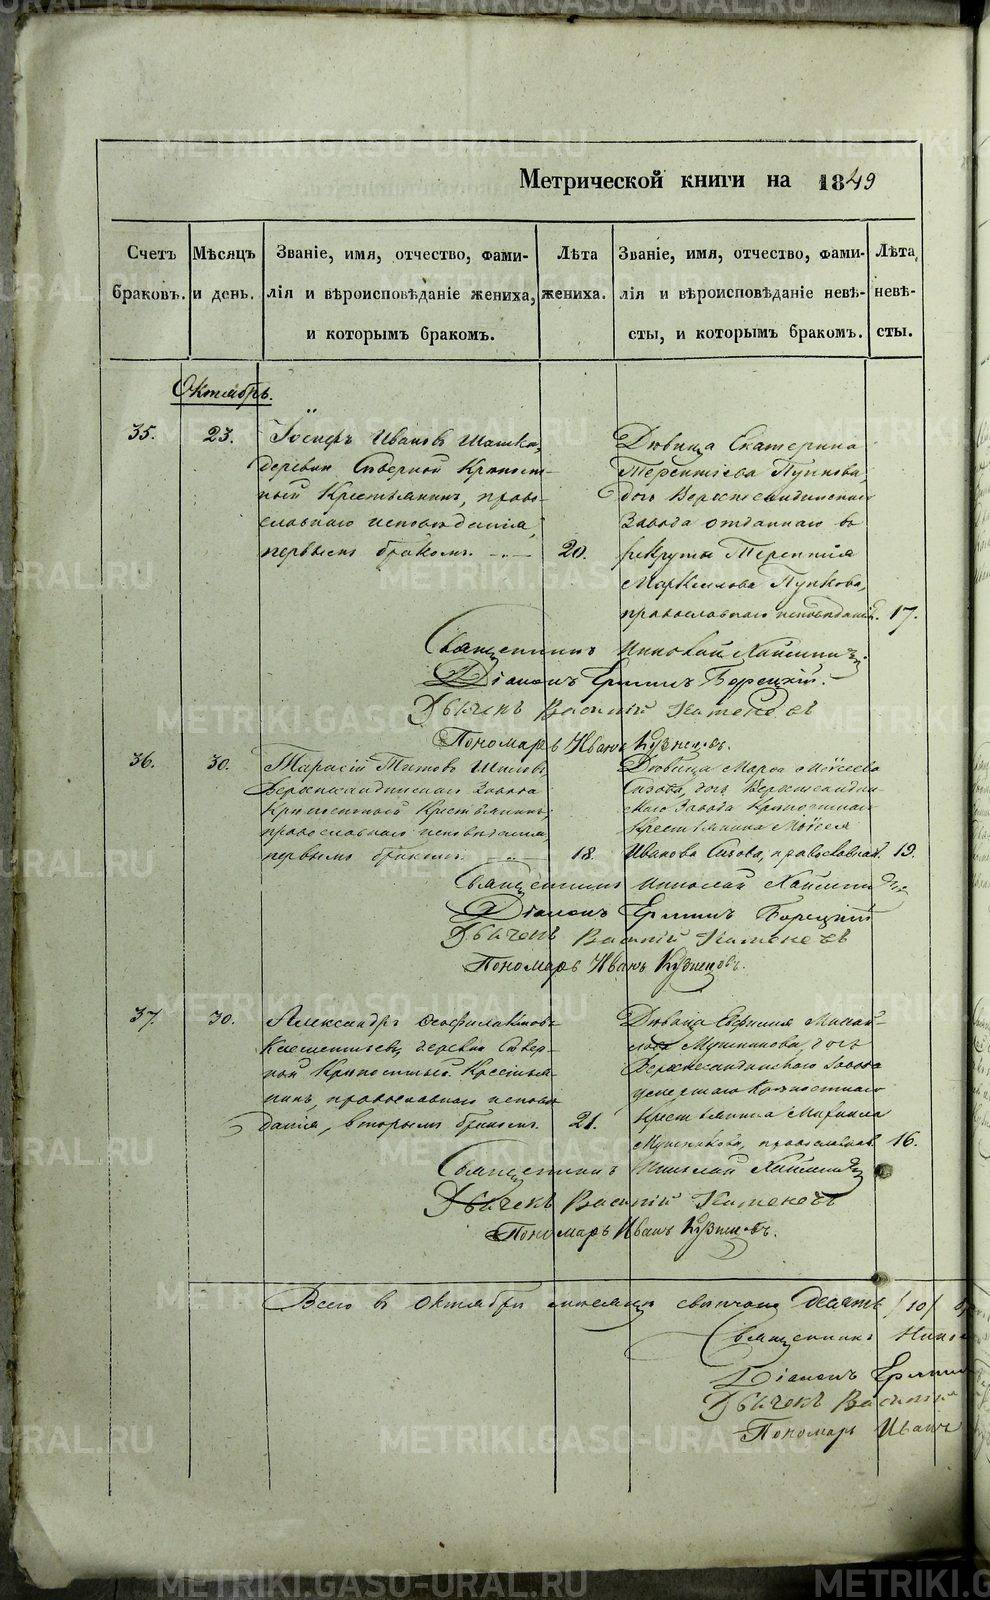 Метрической книги на 1849
Счетъ браковъ.
Мѣсяцъ и день.
Званіе, имя, отчество, фами-
лія и вѣроисповѣданіе жениха,
и которымъ бракомъ.
Лѣта жениха.
Званіе, имя, отчество, фами-
лія и вѣроисповѣданіе невѣ-
сты, и которымъ бракомъ.
Лѣта невѣ-
сты.
Октябрь.
35.
23.
Іосифъ Ивановъ
деревни Сѣверной Крѣпост-
ный Крестьянинъ, право-
славнаго исповѣданія,
первымъ бракомъ.
20.
Дѣвица Екатерина
Терентіева Пупкова,
дочь
Завода отданнаго въ
рекруты Терентія
Маркелова Пупкова,
православнаго исповѣданія.
17.
Священникъ Николай
Діаконъ Ермилъ Борецкій.
Дьячекъ Василій
Пономарь Иванъ Кузнецовъ.
36.
30.
Тарасій Титовъ Шиловъ,
Завода
Крѣпостный Крестьянинъ,
православнаго исповѣданія,
первымъ бракомъ.
18.
Дѣвица Марѳа Моѵсеева
Сизова, дочь
Завода Крѣпостнаго
Крестьянина Моѵсея
Иванова Сизова, православнаго.
19.
Священникъ Николай
Діаконъ Ермилъ Борецкій
Дьячекъ Василій
Пономарь Иванъ Кузнецовъ.
37.
30.
Александръ Ѳеофилактовъ
Клементьевъ, деревни Сѣвер-
ной Крѣпостный Крестья-
нинъ, православнаго исповѣ-
данія, вторымъ бракомъ.
21.
Дѣвица Евфимія Михай-
лова дочь
Завода
умершаго Крѣпостнаго
Крестьянина Михаила
православнаго
16.
Священникъ Николай
Дьячекъ Василій
Пономарь Иванъ Кузнецовъ.
Всего въ Октябрѣ мѣсяцѣ свѣнчано десять /10/
Священникъ
Діаконъ
Дьячекъ Василій
Пономарь Иванъ
METRIKI.GASO-URAL.RU